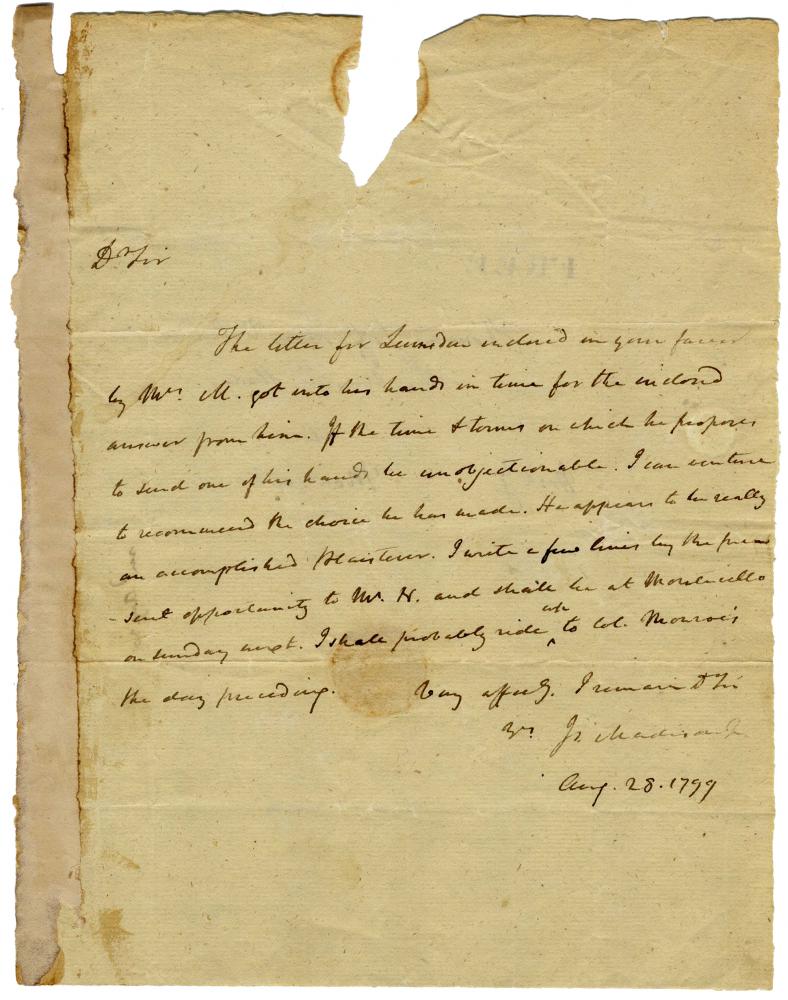 Dr Sir
The letter for Lumsden inclosed in your favor
by Mrs. M. got into his hands in time for the inclosed
answer from him. If the time & terms on which he proposes
to send one of his hands be unobjectionable. I can venture
to recommend the choice he has made. He appears to be really
an accomplished Plaisterer. I write a few lines by the pre
-sent opportunity to Mr. H. and shall be at Monticello
on sunday next. I shall probably ride up to Col. Monroe's
the day preceding. Very affecly. I remain Dr Sir
Yrs. Js. Madison Jr
Aug. 28. 1799
FREE